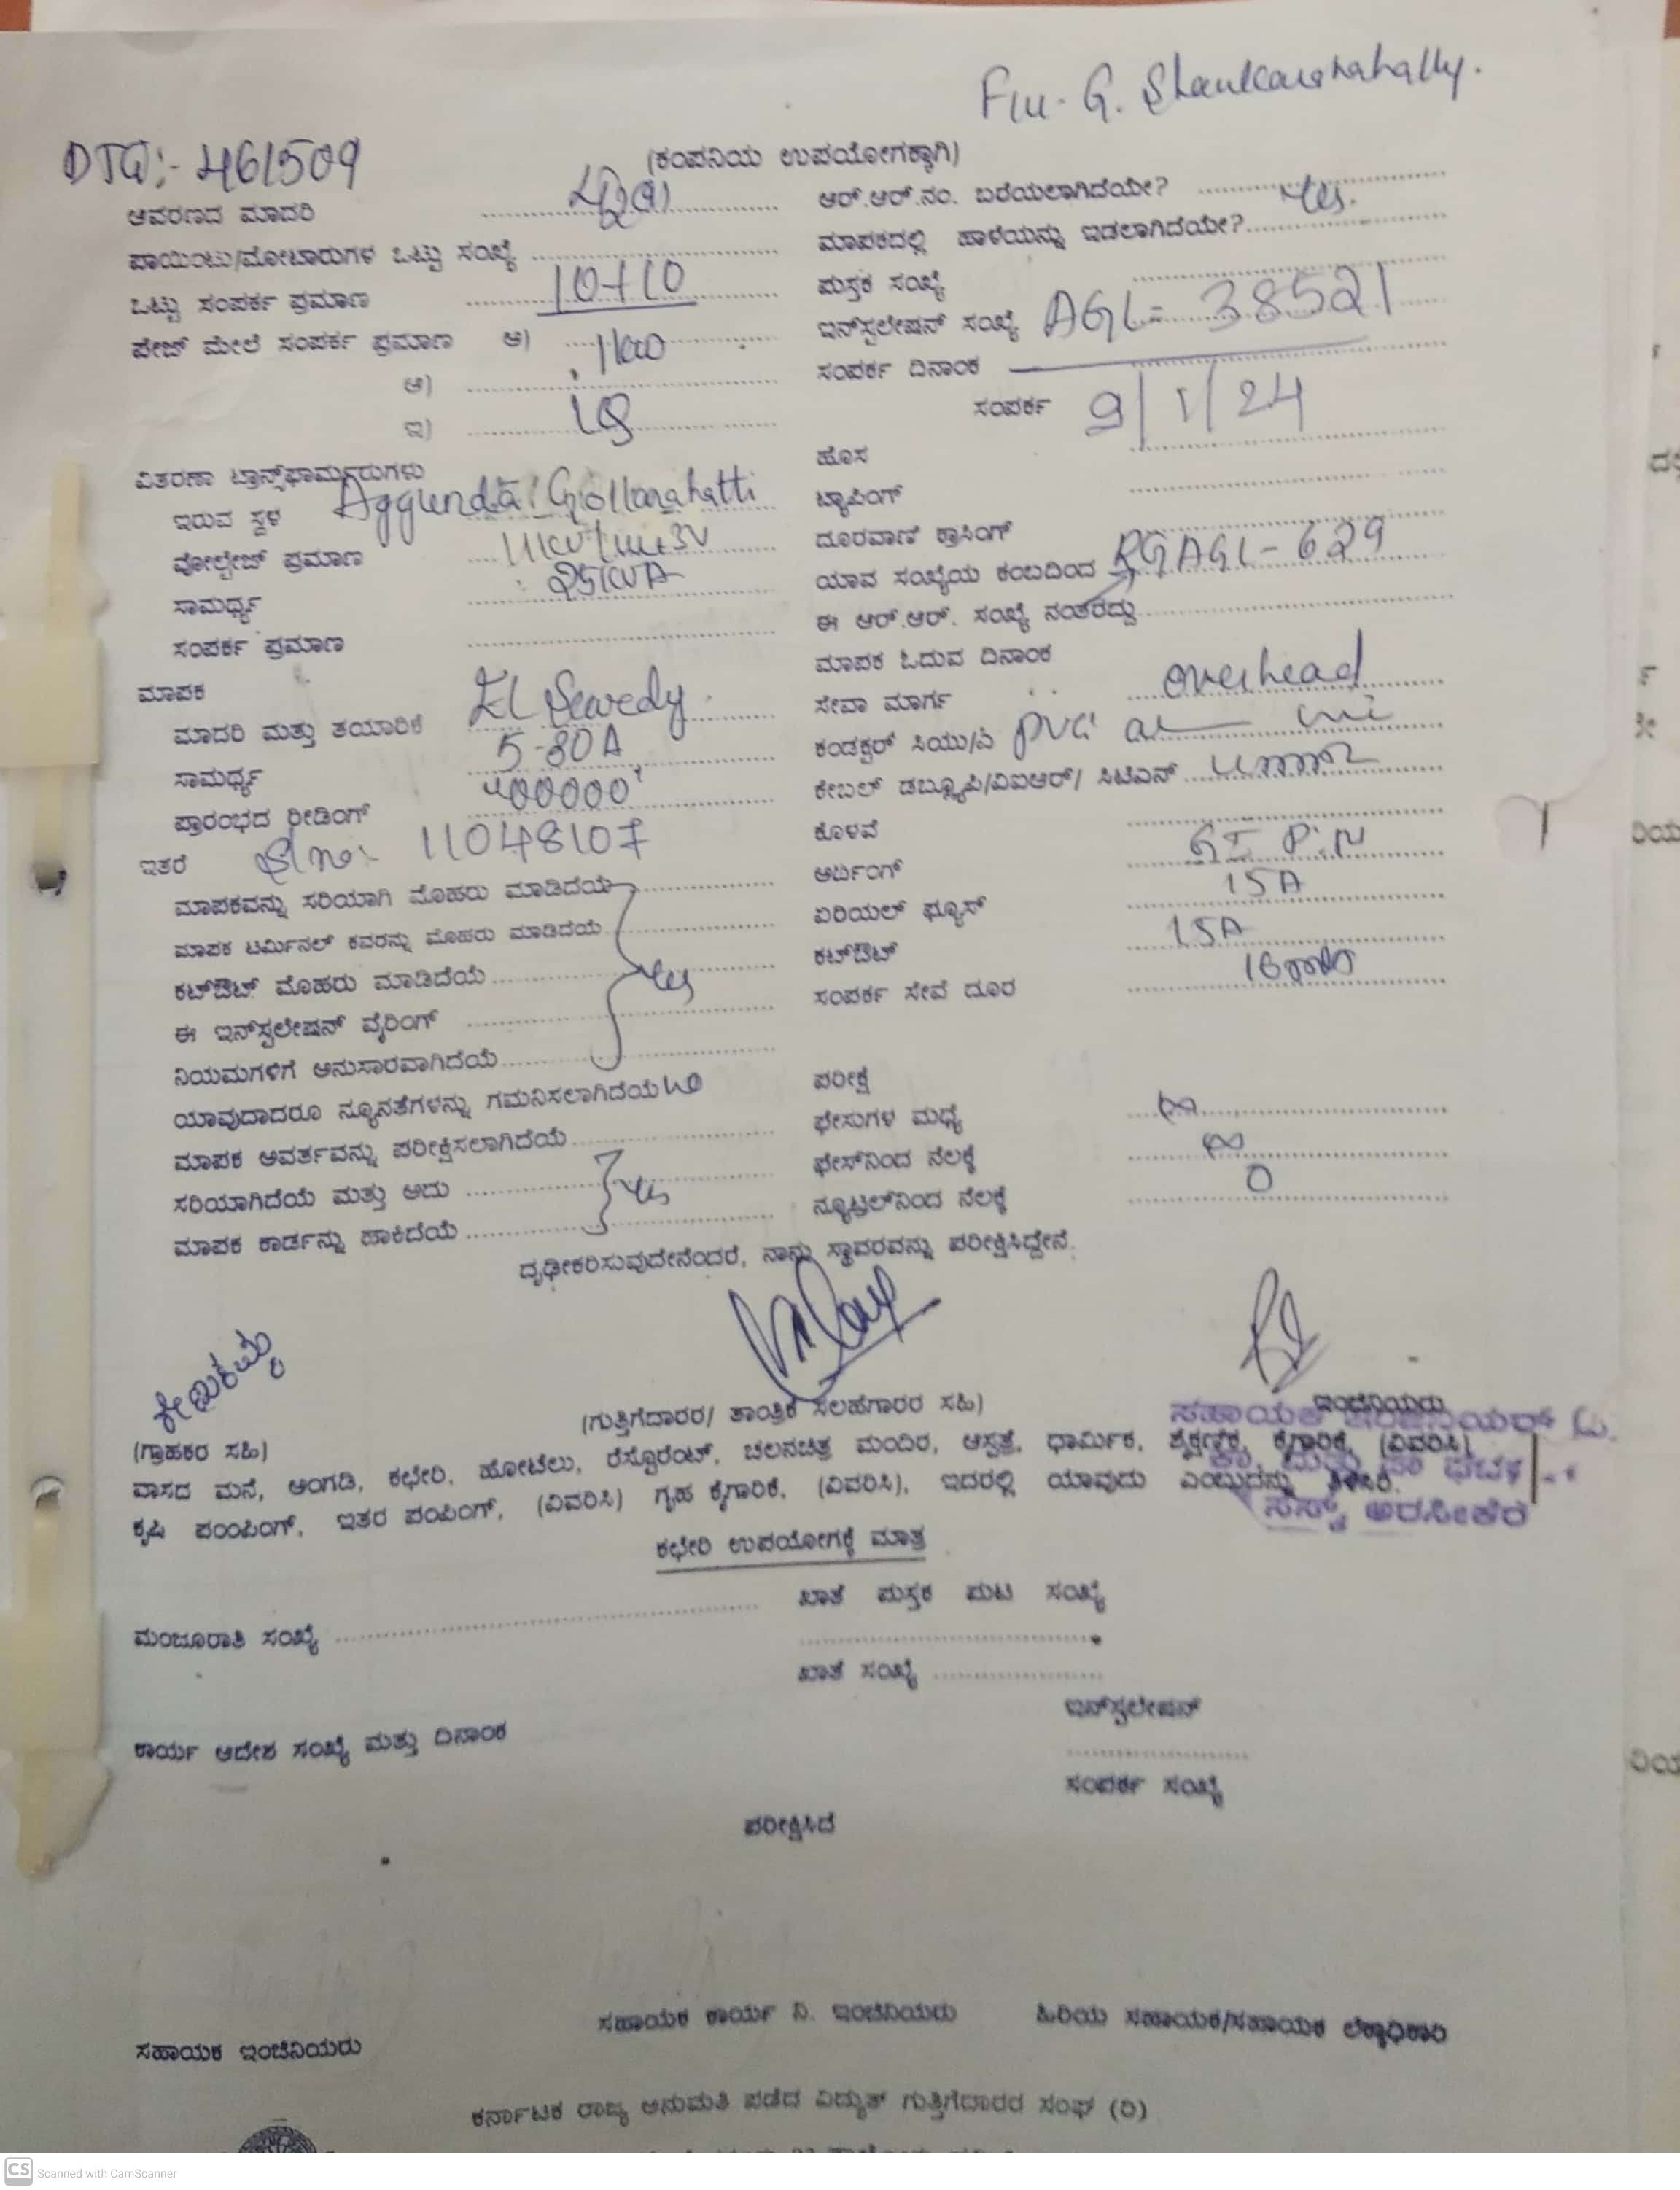 Fm- G. Shankaranahally.
DTC:- 461509
(ಕಂಪನಿಯ ಉಪಯೋಗಕ್ಕಾಗಿ)
ಆವರಣದ ಮಾದರಿ ....................
ಪಾಯಿಂಟು/ಮೋಟಾರುಗಳ ಒಟ್ಟು ಸಂಖ್ಯೆ ....................
ಒಟ್ಟು ಸಂಪರ್ಕ ಪ್ರಮಾಣ 10+10
ಪೇಜ್ ಮೇಲೆ ಸಂಪರ್ಕ ಪ್ರಮಾಣ ಅ)
ಆ) ....................
ಇ) ....................
ವಿತರಣಾ ಟ್ರಾನ್ಸ್‌ಫಾರ್ಮರುಗಳು
ಇರುವ ಸ್ಥಳ Aggunda Gollarahatti
ವೋಲ್ಟೇಜ್ ಪ್ರಮಾಣ
ಸಾಮರ್ಥ್ಯ 25KVA
ಸಂಪರ್ಕ ಪ್ರಮಾಣ ....................
ಮಾಪಕ
ಮಾದರಿ ಮತ್ತು ತಯಾರಿಕೆ El Sewedy
ಸಾಮರ್ಥ್ಯ 5-30A
ಪ್ರಾರಂಭದ ರೀಡಿಂಗ್ 400000
ಇತರೆ Sl no:- 11048107
ಮಾಪಕವನ್ನು ಸರಿಯಾಗಿ ಮೊಹರು ಮಾಡಿದೆಯೆ
ಮಾಪಕ ಟರ್ಮಿನಲ್ ಕವರನ್ನು ಮೊಹರು ಮಾಡಿದೆಯೆ
ಕಟ್‌ಔಟ್ ಮೊಹರು ಮಾಡಿದೆಯೆ yes
ಈ ಇನ್‌ಸ್ಟಲೇಷನ್ ವೈರಿಂಗ್
ನಿಯಮಗಳಿಗೆ ಅನುಸಾರವಾಗಿದೆಯೆ
ಯಾವುದಾದರೂ ನ್ಯೂನತೆಗಳನ್ನು ಗಮನಿಸಲಾಗಿದೆಯೆ No
ಮಾಪಕ ಅವರ್ತವನ್ನು ಪರೀಕ್ಷಿಸಲಾಗಿದೆಯೆ
ಸರಿಯಾಗಿದೆಯೆ ಮತ್ತು ಅದು yes
ಮಾಪಕ ಕಾರ್ಡನ್ನು ಹಾಕಿದೆಯೆ
ಆರ್.ಆರ್.ನಂ. ಬರೆಯಲಾಗಿದೆಯೇ? yes.
ಮಾಪಕದಲ್ಲಿ ಹಾಳೆಯನ್ನು ಇಡಲಾಗಿದೆಯೇ?
ಪುಸ್ತಕ ಸಂಖ್ಯೆ
ಇನ್‌ಸ್ಟಲೇಷನ್ ಸಂಖ್ಯೆ AGL- 38521
ಸಂಪರ್ಕ ದಿನಾಂಕ
ಸಂಪರ್ಕ 9/1/24
ಹೊಸ
ಟ್ಯಾಪಿಂಗ್
ದೂರವಾಣಿ ಕ್ರಾಸಿಂಗ್
ಯಾವ ಸಂಖ್ಯೆಯ ಕಂಬದಿಂದ RGAGL-629
ಈ ಆರ್.ಆರ್. ಸಂಖ್ಯೆ ನಂತರದ್ದು
ಮಾಪಕ ಓದುವ ದಿನಾಂಕ
ಸೇವಾ ಮಾರ್ಗ overhead
ಕಂಡಕ್ಟರ್ ಸಿಯು/ಎ pvc al
ಕೇಬಲ್ ಡಬ್ಲ್ಯೂಪಿ/ವಿಐಆರ್/ ಸಿಟಿಎಸ್ 4mm2
ಕೊಳವೆ
ಅರ್ದಿಂಗ್ GI PiN
ಏರಿಯಲ್ ಫ್ಯೂಸ್ 15A
ಕಟ್‌ಔಟ್ 15A
ಸಂಪರ್ಕ ಸೇವೆ ದೂರ
ಪರೀಕ್ಷೆ
ಫೇಸುಗಳ ಮಧ್ಯೆ ∞
ಫೇಸ್‌ನಿಂದ ನೆಲಕ್ಕೆ ∞
ನ್ಯೂಟ್ರಲ್‌ನಿಂದ ನೆಲಕ್ಕೆ 0
ದೃಢೀಕರಿಸುವುದೇನೆಂದರೆ, ನಾನು ಸ್ಥಾವರವನ್ನು ಪರೀಕ್ಷಿಸಿದ್ದೇನೆ.
(ಗುತ್ತಿಗೆದಾರರ/ ತಾಂತ್ರಿಕ ಸಲಹೆಗಾರರ ಸಹಿ)
ಇಂಜಿನಿಯರು
ಸಹಾಯಕ ಇಂಜಿನಿಯರ್
(ಗ್ರಾಹಕರ ಸಹಿ)
ವಾಸದ ಮನೆ, ಅಂಗಡಿ, ಕಛೇರಿ, ಹೋಟೆಲು, ರೆಸ್ಟೊರೆಂಟ್, ಚಲನಚಿತ್ರ ಮಂದಿರ, ಆಸ್ಪತ್ರೆ, ಧಾರ್ಮಿಕ, ಶೈಕ್ಷಣಿಕ, ಕೈಗಾರಿಕೆ, (ವಿವರಿಸಿ)
ಕೃಷಿ ಪಂಂಪಿಂಗ್, ಇತರ ಪಂಪಿಂಗ್, (ವಿವರಿಸಿ) ಗೃಹ ಕೈಗಾರಿಕೆ, (ವಿವರಿಸಿ), ಇದರಲ್ಲಿ ಯಾವುದು ಎಂಬುದನ್ನು ತಿಳಿಸಿರಿ.
ಅರಸೀಕೆರೆ
ಕಛೇರಿ ಉಪಯೋಗಕ್ಕೆ ಮಾತ್ರ
ಖಾತೆ ಪುಸ್ತಕ ಪುಟ ಸಂಖ್ಯೆ
ಮಂಜೂರಾತಿ ಸಂಖ್ಯೆ ....................
ಖಾತೆ ಸಂಖ್ಯೆ ....................
ಇನ್‌ಸ್ಟಲೇಷನ್
ಕಾರ್ಯ ಆದೇಶ ಸಂಖ್ಯೆ ಮತ್ತು ದಿನಾಂಕ
ಸಂಪರ್ಕ ಸಂಖ್ಯೆ
ಪರೀಕ್ಷಿಸಿದೆ
ಸಹಾಯಕ ಇಂಜಿನಿಯರು ಸಹಾಯಕ ಕಾರ್ಯ ನಿ. ಇಂಜಿನಿಯರು ಹಿರಿಯ ಸಹಾಯಕ/ಸಹಾಯಕ ಲೆಕ್ಕಾಧಿಕಾರಿ
ಕರ್ನಾಟಕ ರಾಜ್ಯ ಅನುಮತಿ ಪಡೆದ ವಿದ್ಯುತ್ ಗುತ್ತಿಗೆದಾರರ ಸಂಘ (ರಿ)
CS Scanned with CamScanner